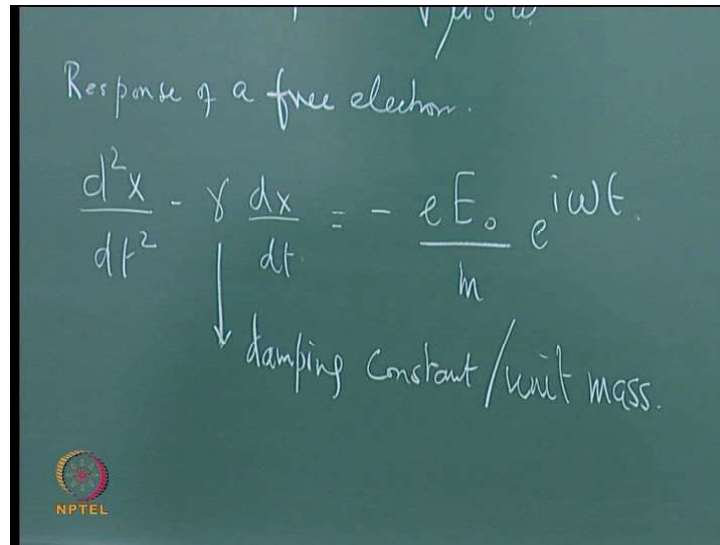 √μσω
Response of a free electron.
d²x/dt² - γ dx/dt = - eE₀/m e^{iωt}.
damping constant/unit mass.
NPTEL